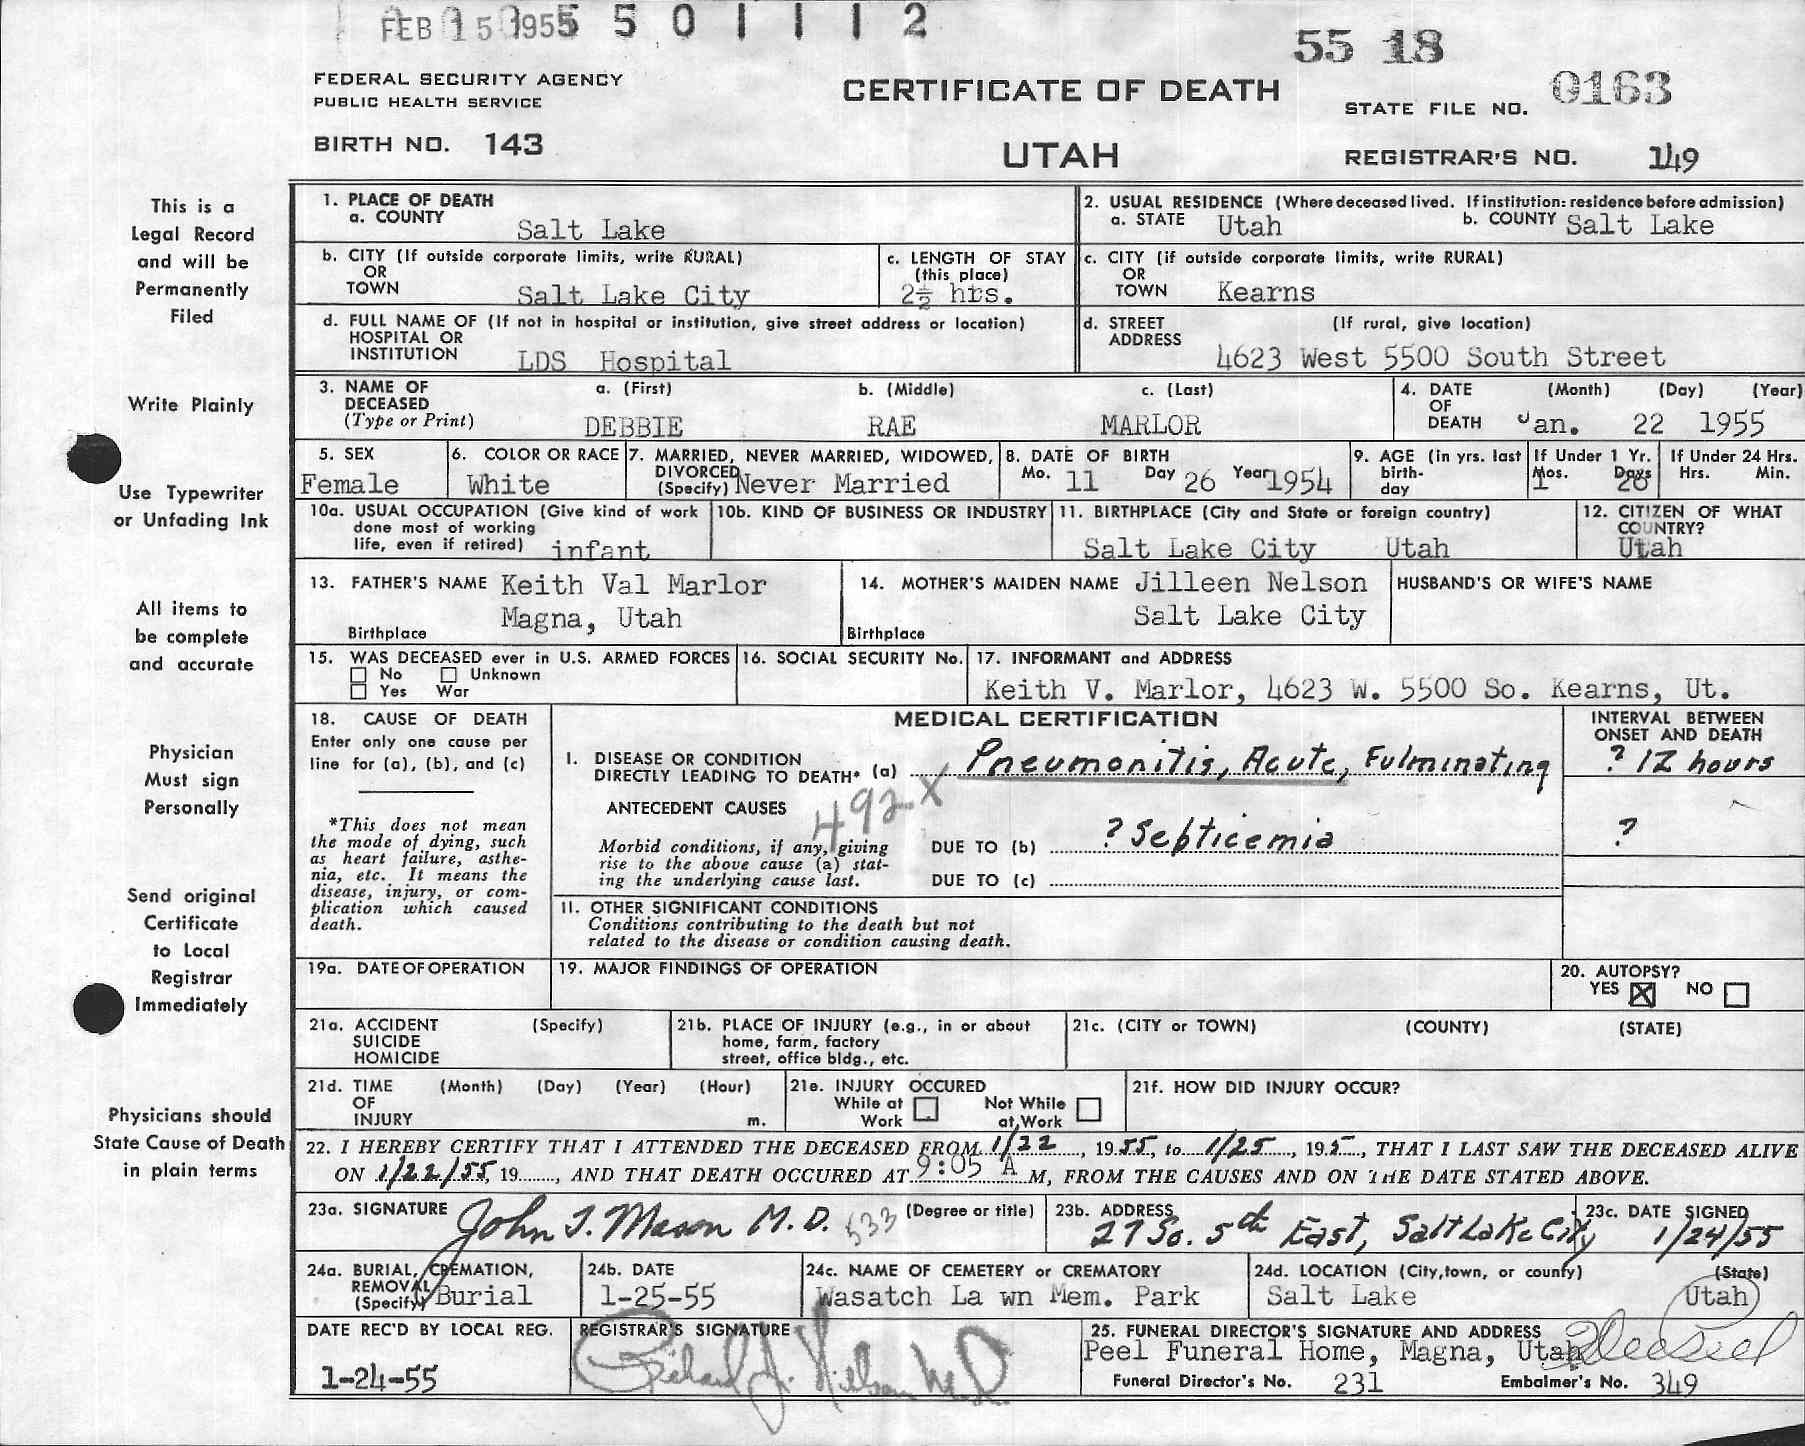 FEB 15 1955 5 0 1 1 1 2
55 18
FEDERAL SECURITY AGENCY
PUBLIC HEALTH SERVICE
CERTIFICATE OF DEATH
STATE FILE NO. 0163
BIRTH NO. 143
UTAH
REGISTRAR'S NO. 149
This is a
Legal Record
and will be
Permanently
Filed
Write Plainly
Use Typewriter
or Unfading Ink
All items to
be complete
and accurate
Physician
Must sign
Personally
Send original
Certificate
to Local
Registrar
Immediately
Physicians should
State Cause of Death
in plain terms
1. PLACE OF DEATH
a. COUNTY Salt Lake
2. USUAL RESIDENCE (Where deceased lived. If institution: residence before admission)
a. STATE Utah b. COUNTY Salt Lake
b. CITY (If outside corporate limits, write RURAL)
OR
TOWN Salt Lake City
c. LENGTH OF STAY
(this place)
2½ hrs.
c. CITY (if outside corporate limits, write RURAL)
OR
TOWN Kearns
d. FULL NAME OF (If not in hospital or institution, give street address or location)
HOSPITAL OR
INSTITUTION LDS Hospital
d. STREET (If rural, give location)
ADDRESS
4623 West 5500 South Street
3. NAME OF a. (First) b. (Middle) c. (Last)
DECEASED
(Type or Print) DEBBIE RAE MARLOR
4. DATE (Month) (Day) (Year)
OF
DEATH Jan. 22 1955
5. SEX
Female
6. COLOR OR RACE
White
7. MARRIED, NEVER MARRIED, WIDOWED,
DIVORCED
(Specify) Never Married
8. DATE OF BIRTH
Mo. 11 Day 26 Year 1954
9. AGE (in yrs. last
birth-
day
If Under 1 Yr.
Mos. 1 Days 26
If Under 24 Hrs.
Hrs. Min.
10a. USUAL OCCUPATION (Give kind of work
done most of working
life, even if retired) infant
10b. KIND OF BUSINESS OR INDUSTRY
11. BIRTHPLACE (City and State or foreign country)
Salt Lake City Utah
12. CITIZEN OF WHAT
COUNTRY?
Utah
13. FATHER'S NAME Keith Val Marlor
Magna, Utah
Birthplace
14. MOTHER'S MAIDEN NAME Jilleen Nelson
Salt Lake City
Birthplace
HUSBAND'S OR WIFE'S NAME
15. WAS DECEASED ever in U.S. ARMED FORCES
No Unknown
Yes War
16. SOCIAL SECURITY No.
17. INFORMANT and ADDRESS
Keith V. Marlor, 4623 W. 5500 So. Kearns, Ut.
18. CAUSE OF DEATH
Enter only one cause per
line for (a), (b), and (c)
*This does not mean
the mode of dying, such
as heart failure, asthe-
nia, etc. It means the
disease, injury, or com-
plication which caused
death.
MEDICAL CERTIFICATION
INTERVAL BETWEEN
ONSET AND DEATH
I. DISEASE OR CONDITION
DIRECTLY LEADING TO DEATH* (a) Pneumonitis, Acute, Fulminating ? 12 hours
492 X
ANTECEDENT CAUSES
Morbid conditions, if any, giving
rise to the above cause (a) stat-
ing the underlying cause last.
DUE TO (b) ? Septicemia ?
DUE TO (c)
11. OTHER SIGNIFICANT CONDITIONS
Conditions contributing to the death but not
related to the disease or condition causing death.
19a. DATE OF OPERATION
19. MAJOR FINDINGS OF OPERATION
20. AUTOPSY?
YES ☒ NO ☐
21a. ACCIDENT (Specify)
SUICIDE
HOMICIDE
21b. PLACE OF INJURY (e.g., in or about
home, farm, factory
street, office bldg., etc.
21c. (CITY or TOWN) (COUNTY) (STATE)
21d. TIME (Month) (Day) (Year) (Hour)
OF
INJURY m.
21e. INJURY OCCURED
While at Not While
Work at Work
21f. HOW DID INJURY OCCUR?
22. I HEREBY CERTIFY THAT I ATTENDED THE DECEASED FROM 1/22, 1955, to 1/25, 195, THAT I LAST SAW THE DECEASED ALIVE
ON 1/22/55, 19......., AND THAT DEATH OCCURED AT 9:05 A M, FROM THE CAUSES AND ON THE DATE STATED ABOVE.
23a. SIGNATURE John J. Mason M.D. 533 (Degree or title)
23b. ADDRESS
27 So. 5th East, Salt Lake City
23c. DATE SIGNED
1/24/55
24a. BURIAL, CREMATION,
REMOVAL
(Specify) Burial
24b. DATE
1-25-55
24c. NAME OF CEMETERY or CREMATORY
Wasatch La wn Mem. Park
24d. LOCATION (City, town, or county) (State)
Salt Lake Utah
DATE REC'D BY LOCAL REG.
1-24-55
REGISTRAR'S SIGNATURE
Richard J. Nielsen MD
25. FUNERAL DIRECTOR'S SIGNATURE AND ADDRESS
Peel Funeral Home, Magna, Utah
Funeral Director's No. 231 Embalmer's No. 349